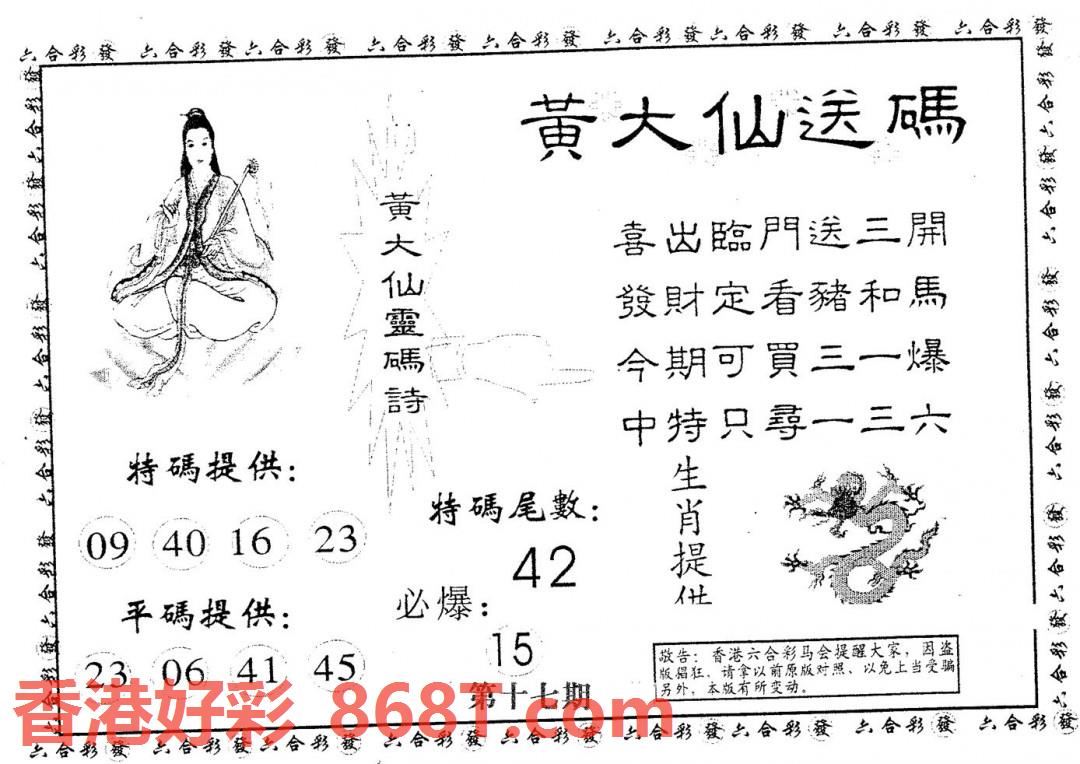 六合彩發 六合彩發 六合彩發 六合彩發 六合彩發 六合彩發 六合彩發 六合彩發 六合彩發
黃大仙送碼
黃大仙靈碼詩
喜出臨門送三開
發財定看豬和馬
今期可買三一爆
中特只尋一三六
特碼提供：
09 40 16 23
平碼提供：
23 06 41 45
特碼尾數：
42
必爆：
15
第十七期
生肖提供
敬告：香港六合彩马会提醒大家，因盗
版猖狂，请拿以前原版对照，以免上当受骗
另外，本版有所变动。
香港好彩 868T.com